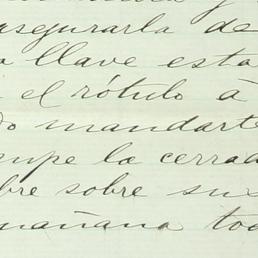 asegurarla de
llave esta
el rótulo à
mandarte
la cerrad
bre sobre sus
mañana to